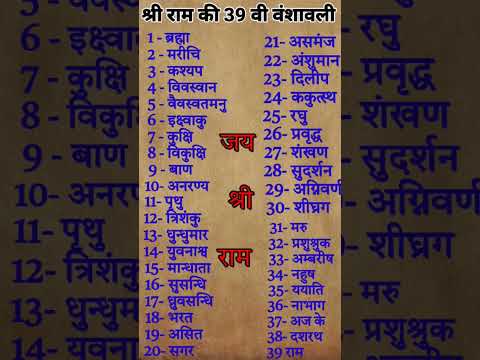 श्री राम की 39 वी वंशावली
1 - ब्रह्मा
2 - मरीचि
3 - कश्यप
4 - विवस्वान
5 - वैवस्वतमनु
6 - इक्ष्वाकु
7 - कुक्षि
8 - विकुक्षि
9 - बाण
10- अनरण्य
11- पृथु
12- त्रिशंकु
13- धुन्धुमार
14- युवनाश्व
15- मान्धाता
16- सुसन्धि
17- ध्रुवसन्धि
18- भरत
19- असित
20- सगर
जय
श्री
राम
21- असमंज
22- अंशुमान
23- दिलीप
24- ककुत्स्थ
25- रघु
26- प्रवृद्ध
27- शंखण
28- सुदर्शन
29- अग्निवर्ण
30- शीघ्रग
31- मरु
32- प्रशुश्रुक
33- अम्बरीष
34- नहुष
35- ययाति
36- नाभाग
37- अज के
38- दशरथ
39 राम
6 - इक्ष्वाकु
7 - कुक्षि
8 - विकुक्षि
9 - बाण
10- अनरण्य
11- पृथु
12- त्रिशंकु
13- धुन्धुमार
रघु
प्रवृद्ध
शंखण
सुदर्शन
अग्निवर्ण
शीघ्रग
मरु
प्रशुश्रुक